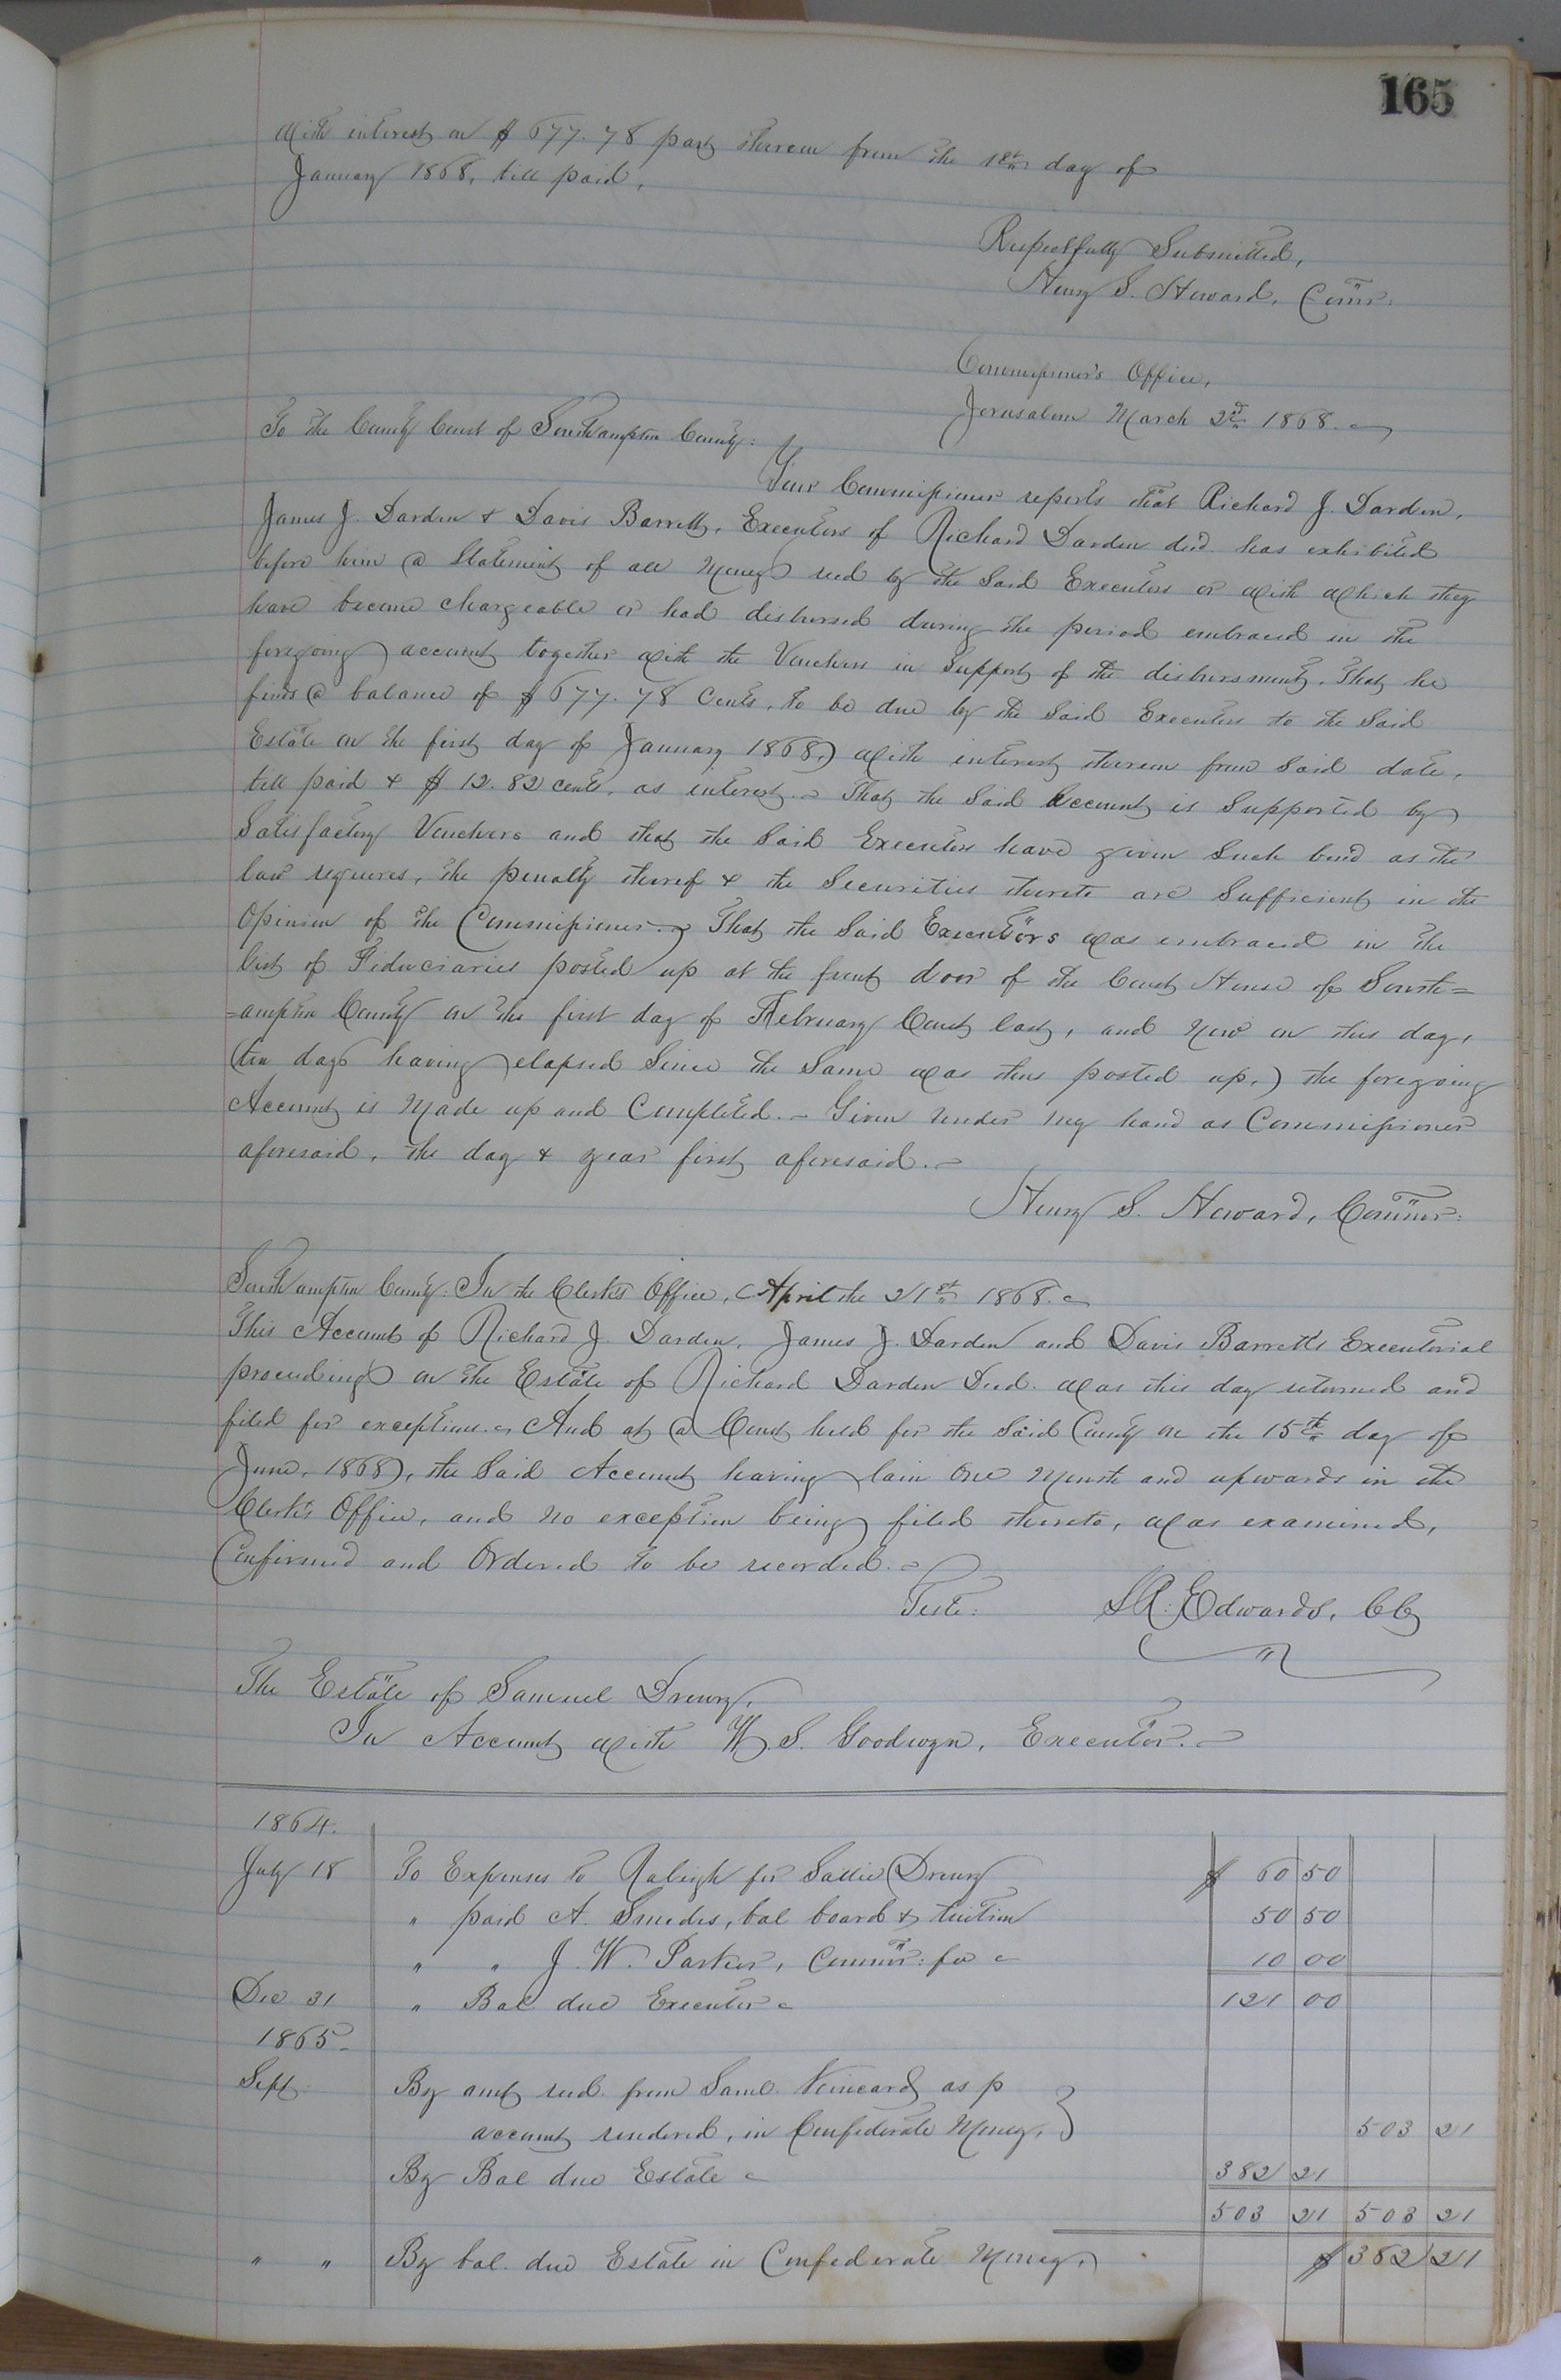 165
with interest on $677.78 part thereon from the 1st day of
January 1868, till paid.
Respectfully Submitted,
Henry S. Howard, Comr.
Commissioner's Office,
Jerusalem March 2d 1868.
To the County Court of Southampton County:
Your Commissioner reports that Richard J. Darden,
James J. Darden & Davis Barrett, Executors of Richard Darden decd. has exhibited
before him a Statement of all Moneys recd by the Said Executors or with which they
have become chargeable or had disbursed during the period embraced in the
foregoing account together with the Vouchers in Support of the disbursments. That he
finds a balance of $677.78 Cents, to be due by the Said Executors to the Said
Estate on the first day of January 1868, with interest thereon from Said date,
till paid & $12.82 cents, as interest. - That the Said Account is Supported by
Satisfactory Vouchers and that the Said Executors have given Such bond as the
law requires, the penalty thereof & the Securities thereto are Sufficient in the
Opinion of the Commissioner. - That the Said Executors was embraced in the
list of Fiduciaries posted up at the front door of the Court House of South=
=ampton County on the first day of February Court last, and Now on this day,
(ten days having elapsed Since the Same was thus posted up,) the foregoing
Account is Made up and Completed. - Given under my hand as Commissioner
aforesaid, the day & year first aforesaid. -
Henry S. Howard, Commr:
Southampton County: In the Clerk's Office, April the 21st 1868.
This Account of Richard J. Darden, James J. Darden and Davis Barrett's Executorial
proceedings on the Estate of Richard Darden Decd. was this day returned and
filed for exceptions. And at a Court held for the Said County on the 15th day of
June, 1868, the Said Account having lain One Month and upwards in the
Clerk's Office, and no exception being filed thereto, was examined,
Confirmed and Ordered to be recorded. -
Teste: L R. Edwards, CC
The Estate of Samuel Drewry,
In Account with W. S. Goodwyn, Executor. -
1864.
July 18 To Expenses to Raleigh for Sallie Drewry $ 60 50
" paid A. Smedes, bal board & tuition 50 50
" " J. W. Parker, Commr: fee 10 00
Dec 31 " Bal due Executor 121 00
1865.
Sept. By amt recd. from Saml. Kincard as p
account rendered, in Confederate Money, 503 21
By Bal due Estate 382 21
503 21 503 21
" " By bal. due Estate in Confederate Money, $382 21